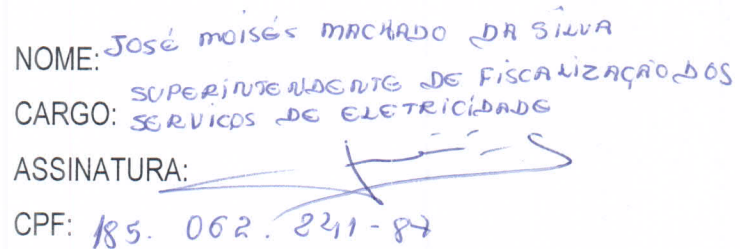 NOME: José moisés MACHADO DA SILVA
CARGO: SUPERINTENDENTE DE FISCALIZAÇÃO DOS
SERVIÇOS DE ELETRICIDADE
ASSINATURA:
CPF: 185. 062. 241-87